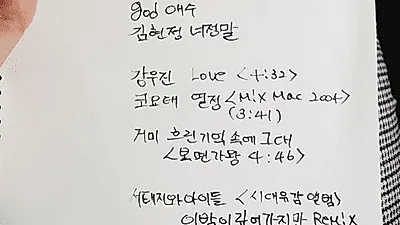 god 애수
김현정 너정말
강우진 Love <4:32>
코요태 열정 <Mix Mac 2004>
(3:41)
거미 흐린기억속에그대
<복면가왕 4:46>
서태지와아이들 <시대유감앨범>
이밤이깊어가지만 ReMiX